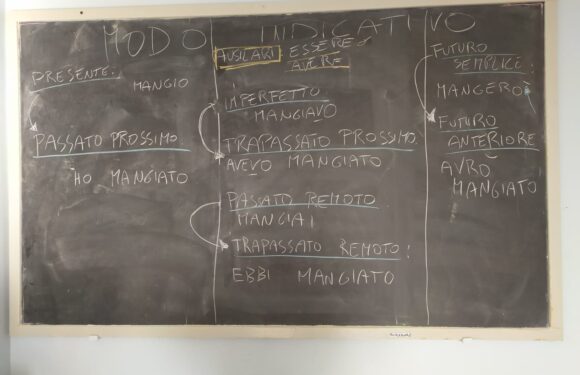 MODO INDICATIVO
AUSILIARI: ESSERE e
AVERE
PRESENTE:
MANGIO
PASSATO PROSSIMO
HO MANGIATO
IMPERFETTO
MANGIAVO
TRAPASSATO PROSSIMO
AVEVO MANGIATO
PASSATO REMOTO
MANGIAI
TRAPASSATO REMOTO:
EBBI MANGIATO
FUTURO
SEMPLICE:
MANGERÒ
FUTURO
ANTERIORE
AVRÒ
MANGIATO